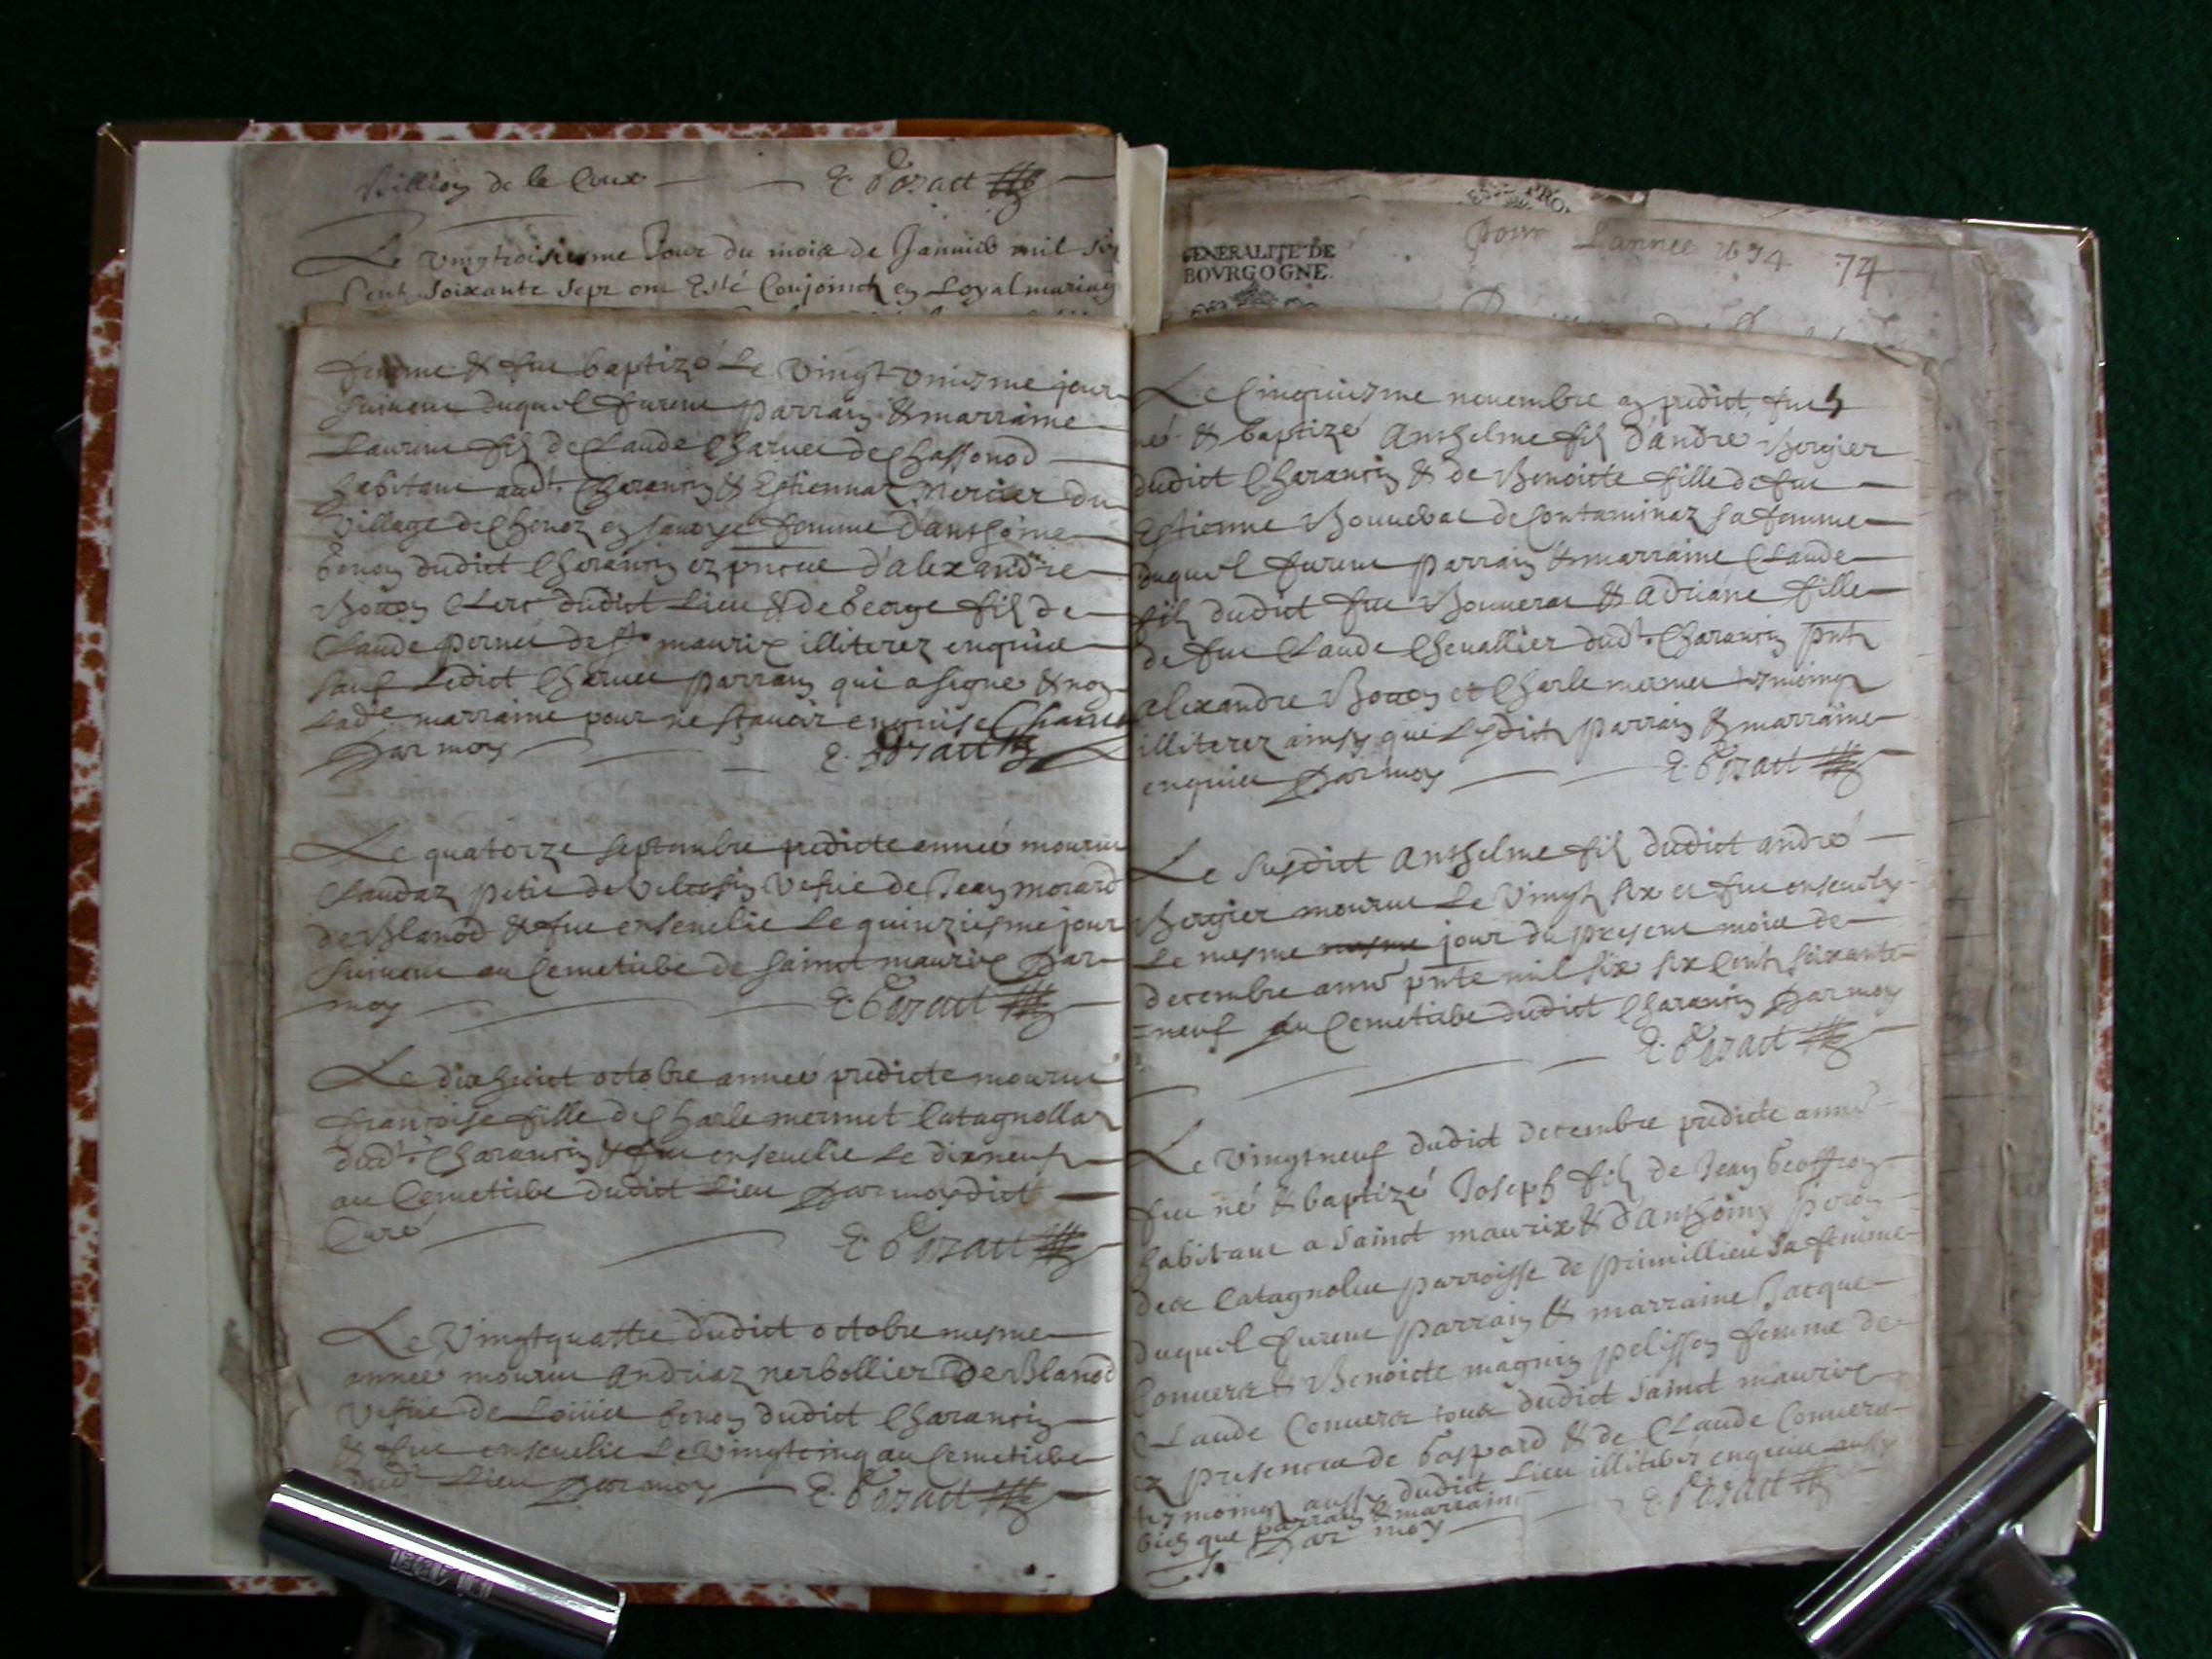 Villion de la Coux E. Gozact
Le vingtroisiesme Jour du mois de Janvier mil six
Cent soixante sept ont Esté Conjoinct en Loyal mariag
GENERALITE DE
BOVRGOGNE.
Pour Lannee 1674 74
femme & fut baptizé Le vingt uniesme jour
suivent duquel furent parrain & marraine
Laurent fils de Claude Charvet de Chassonod
habitant audt. Charancin & Estiennaz Mercier du
village de Chenoz en savoye femme danthoine
Genon dudict Charancin ez pntce d'alexandre
Bovon Clerc dudict Lieu & de George fils de
Claude pernet de St maurix illiterez enquis
sauf Ledict Charvet parrain qui a signé & non
Lade marraine pour ne sçavoir enquise Charvet
Par moy E. Gozact
Le quatorze septembre predicte année mourut
Claudaz petit de vefve de Jean morard
de Blanod & fut ensevelie Le quinziesme jour
suivent au Cemetiere de sainct maurix Par
moy E. Gozact
Le dixhuict octobre année predicte mourut
françoise fille de Charle mermet Catagnollaz
dudt. Charancin & fut ensevelie Le dixneuf
au Cemetiere dudict Lieu Par moy dict
Curé E. Gozact
Le Vingtquattre dudict octobre mesme
année mourut Andriaz nerbollier De Blanod
vefve de Loüis Genon dudict Charancin
& fut ensevelie Le vingtcinq au Cemetiere
dudt Lieu Par moy E. Gozact
Le Cinquiesme novembre an predict fut
né & baptizé Anthelme fils d'andre Bergier
dudict Charancin & de Benoicte fille de fut
Estienne Bonnevat de Contaminaz sa femme
duquel furent parrain & marraine Claude
fils dudict fut Bonnerat & adriane fille
de fut Claude Chevallier dudt. Charancin pnts
alexandre Bovon et Charle mermet tesmoings
illiterez ainsy que Lesdicts parrain & marraine
enquis Par moy E. Gozact
Le susdict Anthelme fils dudict andré
Bergier mourut Le Vingt six et fut ensevely
Le mesme mesme jour du present mois de
decembre anné pnte mil six six Cents soixante
=neuf au Cemetiere dudict Charancin Par moy
E. Gozact
Le Vingtneuf dudict decembre predicte année
fut né & baptizé Joseph fils de Jean Geoffroy
habitant a Sainct maurix & d'Anthoine peron
des Catagnolin parroisse de primillieu sa femme
duquel furent parrain & marraine Jacque
Convers & Benoicte magnin pelisson femme de
Claude Convers tous dudict Sainct maurix
ez presence de Gaspard & de Claude Convers
tesmoings aussy dudict Lieu illiterez enquis aussy
bien que parrain & marraine E. Gozact
Par moy